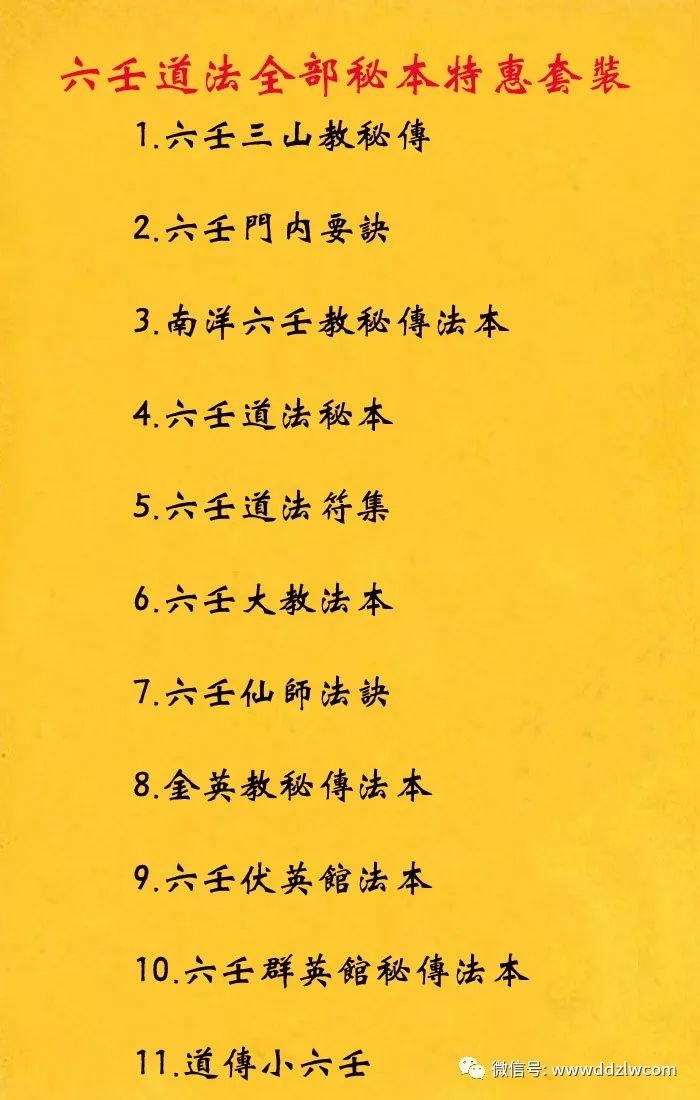 六壬道法全部秘本特惠套裝
1.六壬三山教秘傳
2.六壬門内要訣
3.南洋六壬教秘傳法本
4.六壬道法秘本
5.六壬道法符集
6.六壬大教法本
7.六壬仙師法訣
8.金英教秘傳法本
9.六壬伏英館法本
10.六壬群英館秘傳法本
11.道傳小六壬
微信号: wwwddzlwcom